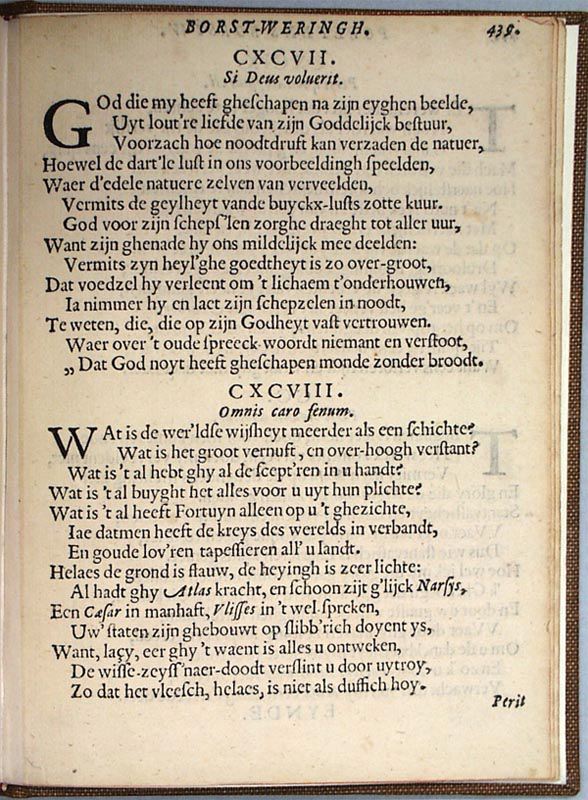 BORST-WERINGH. 435.
CXCVII.
Si Deus voluerit.
GOd die my heeft gheschapen na zijn eyghen beelde,
Uyt lout're liefde van zijn Goddelijck bestuur,
Voorzach hoe noodtdruft kan verzaden de natuer,
Hoewel de dart'le lust in ons voorbeeldingh speelden,
Waer d'edele natuere zelven van verveelden,
Vermits de geylheyt vande buyckx-lusts zotte kuur.
God voor zijn scheps'len zorghe draeght tot aller uur,
Want zijn ghenade hy ons mildelijck mee deelden:
Vermits zyn heyl'ghe goedtheyt is zo over-groot,
Dat voedzel hy verleent om 't lichaem t'onderhouwen,
Ia nimmer hy en laet zijn schepzelen in noodt,
Te weten, die, die op zijn Godheyt vast vertrouwen.
Waer over 't oude spreeck-woordt niemant en verstoot,
„ Dat God noyt heeft gheschapen monde zonder broodt.
CXCVIII.
Omnis caro fenum.
WAt is de wer'ldse wijsheyt meerder als een schichte?
Wat is het groot vernuft, en over-hoogh verstant?
Wat is 't al hebt ghy al de scept'ren in u handt?
Wat is 't al buyght het alles voor u uyt hun plichte?
Wat is 't al heeft Fortuyn alleen op u 't ghezichte,
Iae datmen heeft de kreys des werelds in verbandt,
En goude lov'ren tapessieren all' u landt.
Helaes de grond is flauw, de heyingh is zeer lichte:
Al hadt ghy Atlas kracht, en schoon zijt g'lijck Narsys,
Een Cæsar in manhaft, Vlisses in 't wel-spreken,
Uw' staten zijn ghebouwt op slibb'rich doyent ys,
Want, laçy, eer ghy 't waent is alles u ontweken,
De wisse-zeyss'naer-doodt verslint u door uytroy,
Zo dat het vleesch, helaes, is niet als duffich hoy.
Perit